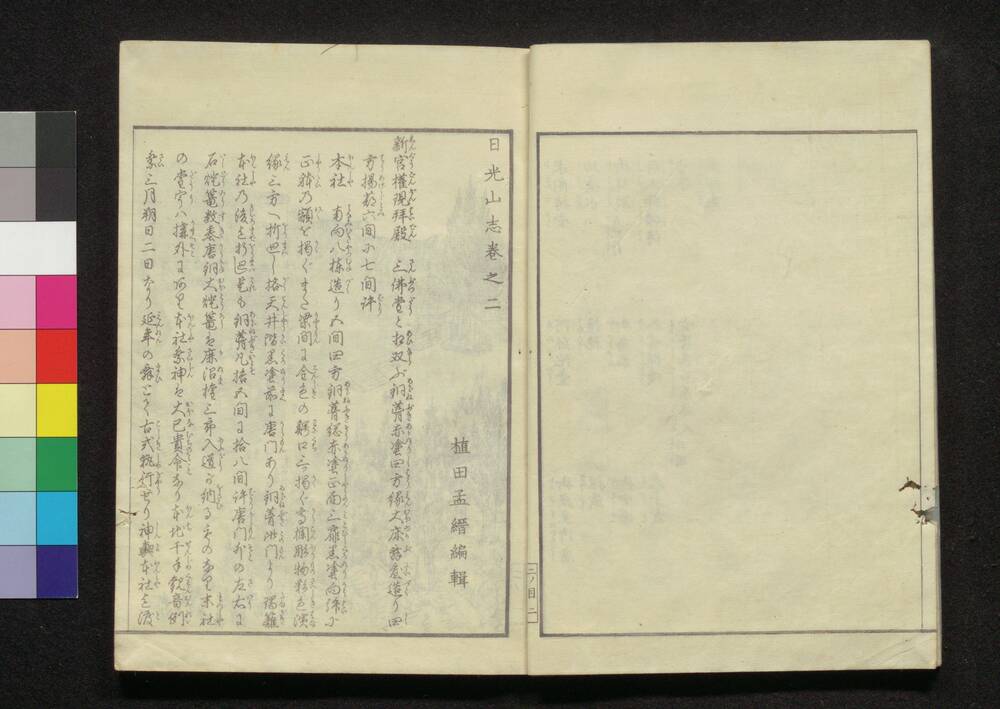 日光山志巻之二
植田孟縉編輯
新宮權現拜殿 三佛堂と相双ふ銅葺赤塗四方縁大床惣疊造り四
方揚蔀六間に七間許
本社 南向八棟造り五間四方銅葺総赤塗正面三扉黒塗向拝に
正躰の額を掲ぐまた梁間に金色の鰐口三掲ぐ高欄彫物彩色濱
縁三方へ折廻し格天井階黒塗前に唐門あり銅葺此門より瑞籬
本社の後を折廻是も銅葺凡拾五間に拾八間許唐門外の左右に
石燈籠数基唐銅大燈籠は鹿沼
入道
納る
末社
の堂宇は構外にあり本社祭神は大己貴命なり本地千手観音例
祭三月朔日二日なり延年の舞とて古式執行せり神輿本社を渡
二ノ目 二